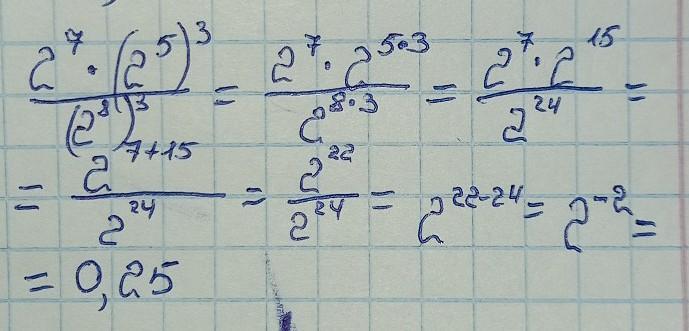 2^7 · (2^5)^3 / (2^8)^3 = 2^7 · 2^{5·3} / 2^{8·3} = 2^7 · 2^{15} / 2^{24} =
= 2^{7+15} / 2^{24} = 2^{22} / 2^{24} = 2^{22-24} = 2^{-2} =
= 0,25